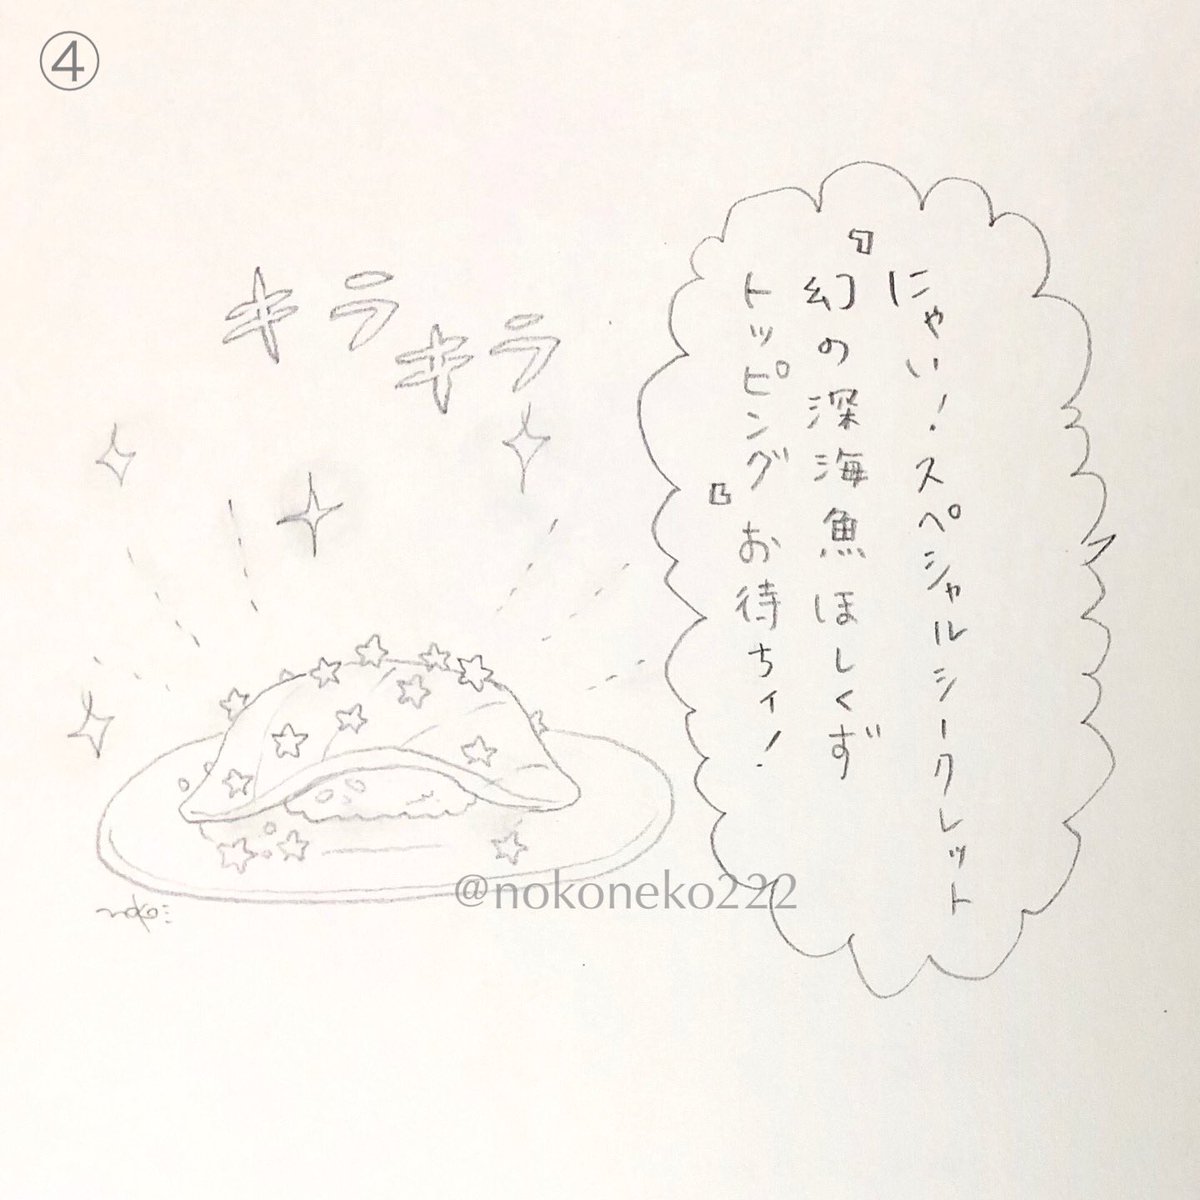 ④
にゃい!スペシャルシークレット
『幻の深海魚ほしくず
トッピング』お待ちィ!
キラ
キラ
@nokoneko222